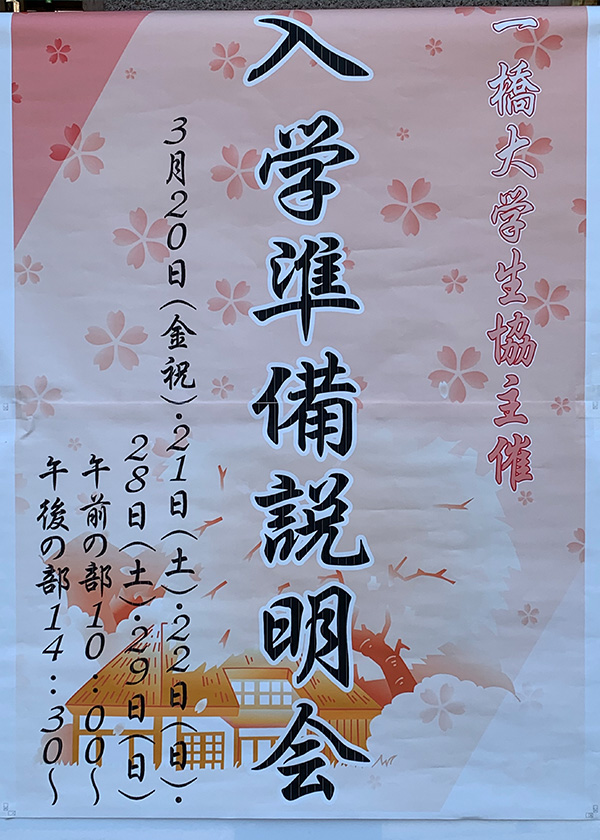 一橋大学生協主催
入学準備説明会
3月20日(金祝)・21日(土)・22日(日)・
28日(土)・29日(日)
午前の部10:00~
午後の部14:30~